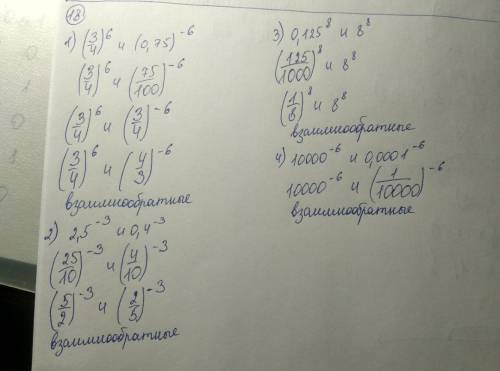 18
1) (3/4)^6 и (0,75)^-6
(3/4)^6 и (75/100)^-6
(3/4)^6 и (3/4)^-6
(3/4)^6 и (4/3)^-6
взаимнообратные
2) 2,5^-3 и 0,4^-3
(25/10)^-3 и (4/10)^-3
(5/2)^-3 и (2/5)^-3
взаимнообратные
3) 0,125^8 и 8^8
(125/1000)^8 и 8^8
(1/8)^8 и 8^8
взаимнообратные
4) 10000^-6 и 0,0001^-6
10000^-6 и (1/10000)^-6
взаимнообратные